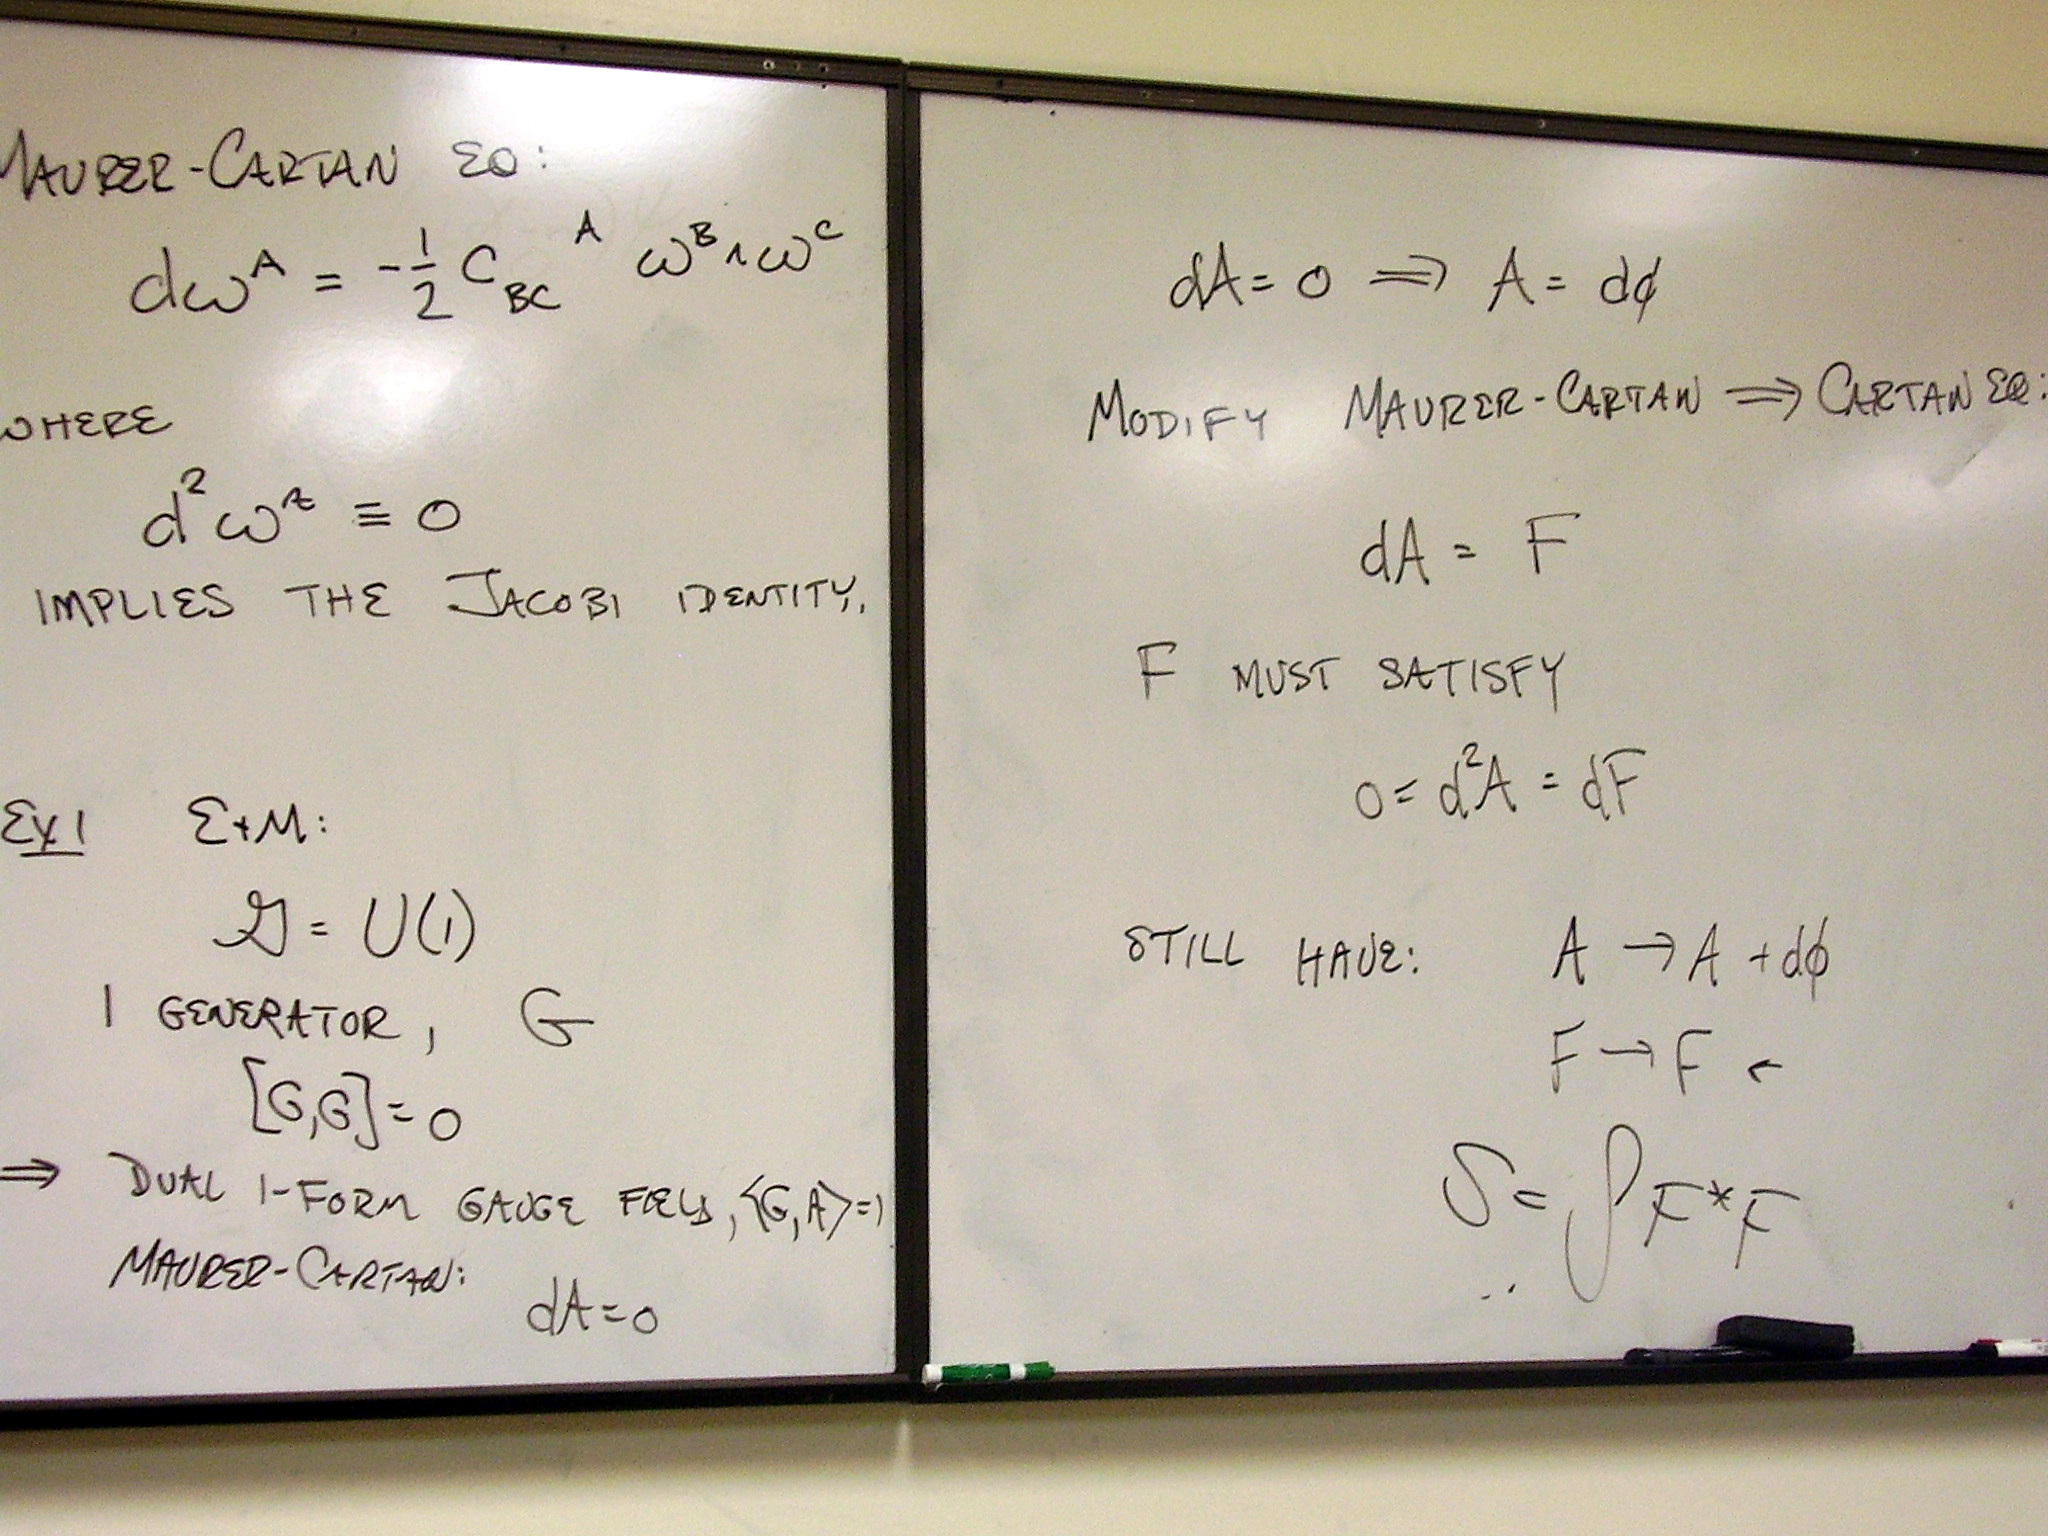 MAURER-CARTAN EQ:
dω^A = -1/2 C_BC^A ω^B ∧ ω^C
WHERE
d²ω ≡ 0
IMPLIES THE JACOBI IDENTITY.
Ex 1 E+M:
𝒢 = U(1)
1 GENERATOR, G
[G,G]=0
⇒ DUAL 1-FORM GAUGE FIELD, ⟨G,A⟩=1
MAURER-CARTAN:
dA=0
dA=0 ⇒ A=dϕ
MODIFY MAURER-CARTAN ⇒ CARTAN EQ:
dA = F
F MUST SATISFY
0 = d²A = dF
STILL HAVE: A → A + dϕ
F → F ←
S = ∫ F*F